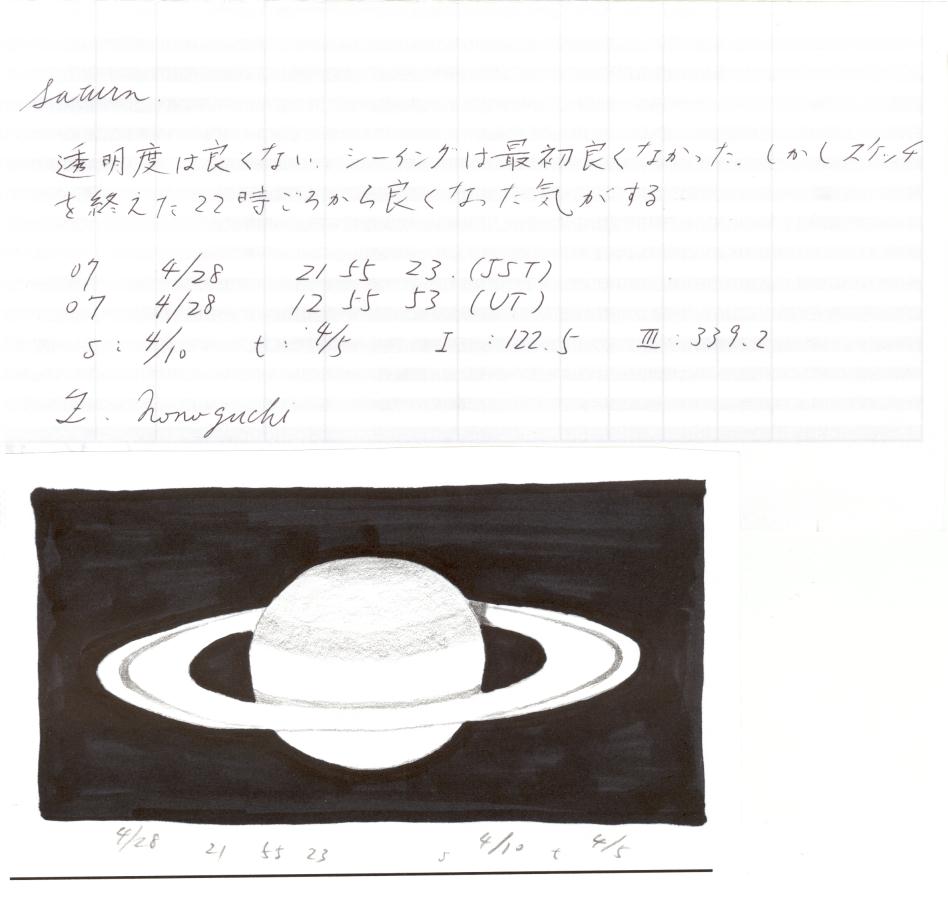 Saturn.
透明度は良くない. シーイングは最初良くなかった. しかしスケッチ
を終えた22時ごろから良くなった気がする.
07 4/28 21 55 23. (JST)
07 4/28 12 55 53 (UT)
s : 4/10 t : 4/5 I : 122.5 III : 339.2
Z. Nonoguchi
4/28 21 55 23 s 4/10 t 4/5